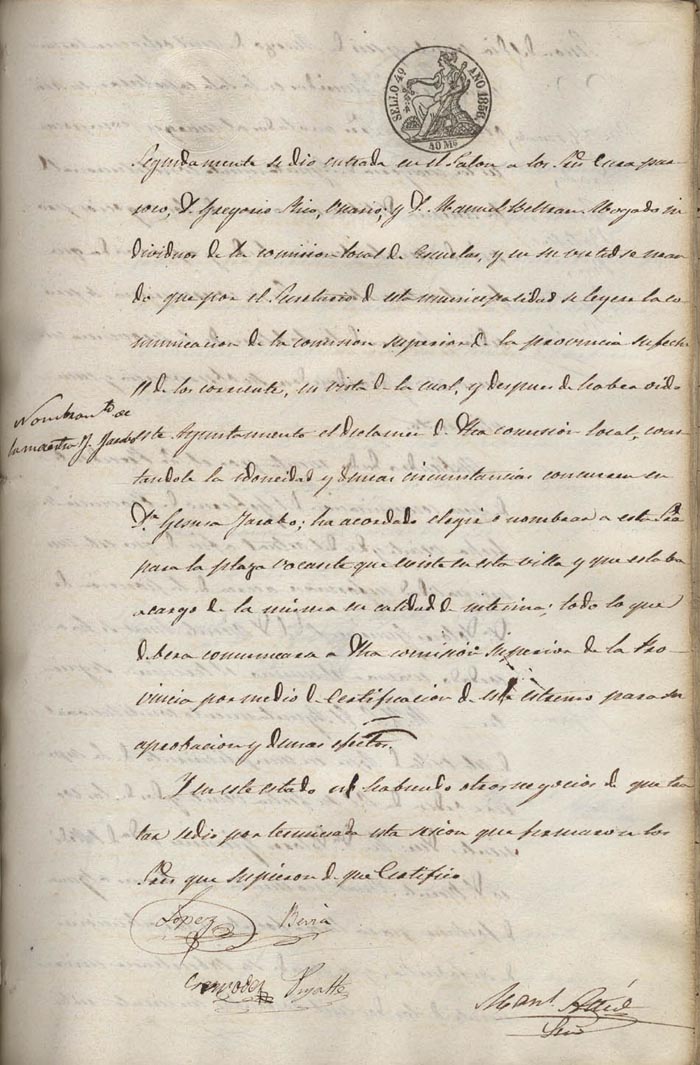 SELLO 4º AÑO 1856.
40 Ms
Seguidamente se dio entrada en el Salon a los Srs. Cura par-
roco, D. Gregorio Rico, Vicario; y D. Manuel Beltran Abogado in
dividuos de la comision local de Escuelas, y en su virtud se man
do que por el Secretario de esta municipalidad se leyese la co
municacion de la comision superior de la provincia su fecha
11 de los corriente, en vista de la cual, y despues de haber oido
Nombramto de
la maestra Dª Jarabo
este Ayuntamiento el dictamen de dha comision local, cons
tandole la idoneidad y demas circunstancias concurren en
Dª. Jarabo; ha acordado elegir o nombrar a esta Sra
para la plaza vacante que existe en esta villa y que estaba
a cargo de la misma en calidad de interina; todo lo que
debera comunicara a dha comision Superior de la Pro
vincia por medio de Certificacion de este estremo para su
aprobacion y demas efectos.
Y en este estado no habiendo otros negocios de que tra
tar se dio por terminada esta sesion que firmaron los
Sres que supieron de que Certifico
Lopez
Manl.
Srio